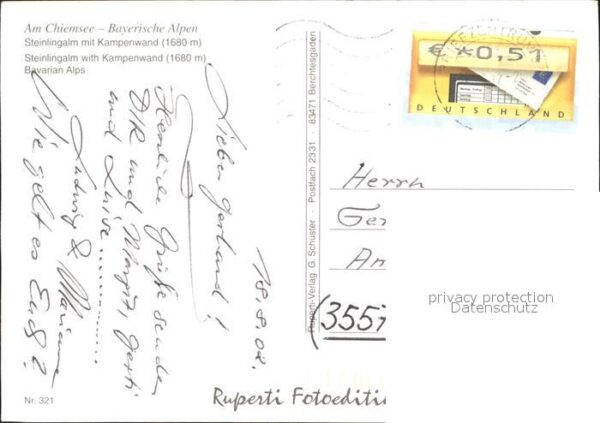 Am Chiemsee – Bayerische Alpen
Steinlingalm mit Kampenwand (1680 m)
Steinlingalm with Kampenwand (1680 m)
Bavarian Alps
18.8.02.
Lieber Gerhard!
Herzliche Grüße senden
Dir und Margit, Gerti
und Luise
Ludwig & Marianne
Wie geht es Euch?
Nr. 321
Ruperti-Verlag G. Schuster · Postfach 2331 · 83471 Berchtesgaden
€ *0,51
DEUTSCHLAND
Herrn
Ger
Am
3557
privacy protection
Datenschutz
Ruperti Fotoediti